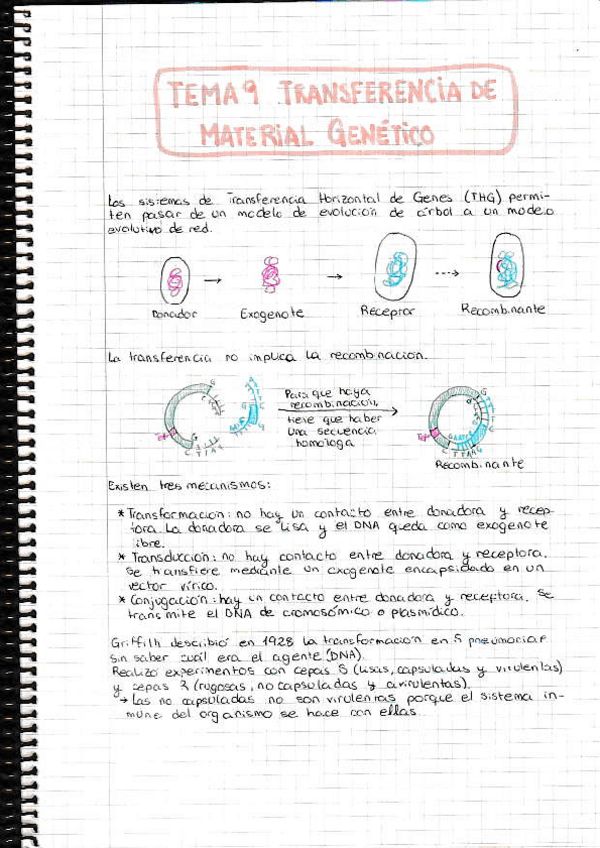 TEMA 9 TRANSFERENCIA DE
MATERIAL GENÉTICO
Los sistemas de Transferencia Horizontal de Genes (THG) permi-
ten pasar de un modelo de evolución de árbol a un modelo
evolutivo de red.
Donador Exogenote Receptor Recombinante
La transferencia no implica la recombinación.
Para que haya
recombinación,
tiene que haber
una secuencia
homóloga
Recombinante
Existen tres mecanismos:
* Transformación: no hay un contacto entre donadora y recep-
tora. La donadora se lisa y el DNA queda como exogenote
libre.
* Transducción: no hay contacto entre donadora y receptora.
Se transfiere mediante un exogenote encapsidado en un
vector vírico.
* Conjugación: hay un contacto entre donadora y receptora. Se
transmite el DNA de cromosómico o plasmídico.
Griffith describió en 1928 la transformación en S pneumoniae
sin saber cuál era el agente (DNA).
Realizó experimentos con cepas S (lisas, capsuladas y virulentas)
y cepas R (rugosas, no capsuladas y avirulentas).
→ Las no capsuladas no son virulentas porque el sistema in-
mune del organismo se hace con ellas.